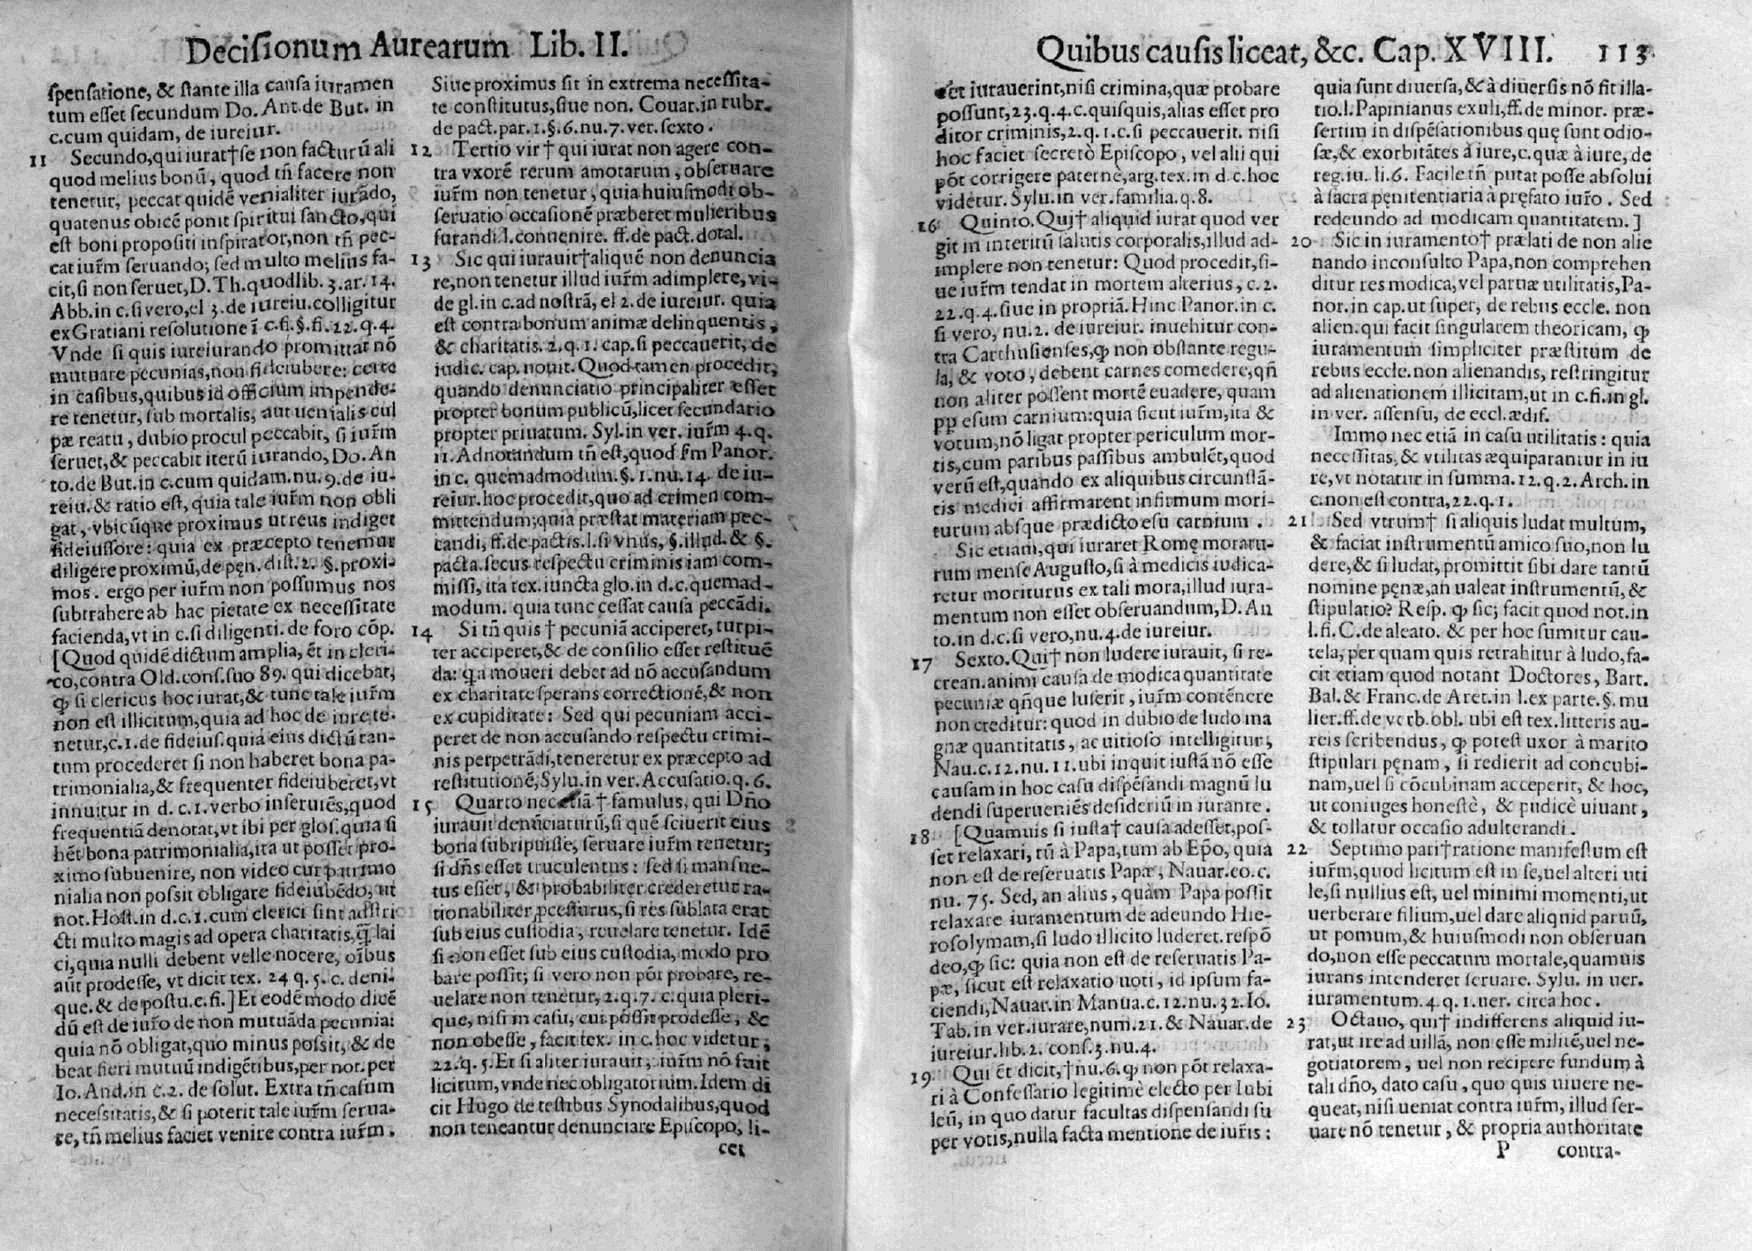 Decisionum Aurearum Lib. II.
spensatione, & stante illa causa iuramen
tum esset secundum Do. Ant. de But. in
c. cum quidam, de iureiur.
11 Secundo, qui iurat†se non facturū ali
quod melius bonū, quod tñ facere non
tenetur, peccat quidē venialiter iurādo,
quatenus obicē ponit spiritui sancto, qui
est boni propositi inspirator, non tñ pec-
cat iur̃m seruando; sed multo melius fa-
cit, si non seruet, D. Th. quodlib. 3. ar. 14.
Abb. in c. si vero, el 3. de iureiu. colligitur
ex Gratiani resolutione ī c. fi. §. fi. 22. q. 4.
Vnde si quis iureiurando promittat nō
mutuare pecunias, non fideiubere: certe
in casibus, quibus id officium impende-
re tenetur, sub mortalis, aut uenialis cul
pæ reatu, dubio procul peccabit, si iur̃m
seruet, & peccabit iterū iurando, Do. An
to. de But. in c. cum quidam. nu. 9. de iu-
reiu. & ratio est, quia tale iur̃m non obli
gat, vbicūque proximus ut reus indiget
fideiussore: quia ex præcepto tenemur
diligere proximū, de pęn. dist. 2. §. proxi-
mos. ergo per iur̃m non possumus nos
subtrahere ab hac pietate ex necessitate
facienda, vt in c. si diligenti. de foro cōp.
[Quod quidē dictum amplia, ēt in cleri-
co, contra Old. cons. suo 89. qui dicebat,
ꝙ si clericus hoc iurat, & tunc tale iur̃m
non est illicitum, quia ad hoc de iure te-
netur, c. 1. de fideius. quia eius dictū tan-
tum procederet si non haberet bona pa-
trimonialia, & frequenter fideiuberet, vt
innuitur in d. c. 1. verbo inseruiēs, quod
frequentiā denotat, vt ibi per glos. quia si
hēt bona patrimonialia, ita ut posset pro-
ximo subuenire, non video cur patrimo
nialia non possit obligare fideiubēdo, ut
not. Host. in d. c. 1. cum clerici sint adstri
cti multo magis ad opera charitatis, q̃ lai
ci, quia nulli debent velle nocere, oībus
aūt prodesse, vt dicit tex. 24 q. 5. c. deni-
que. & de postu. c. fi.] Et eodē modo dicē
dū est de iur̃o de non mutuāda pecunia:
quia nō obligat, quo minus possit, & de
beat fieri mutuū indigētibus, per not. per
Io. And. in c. 2. de solut. Extra tñ casum
necessitatis, & si poterit tale iur̃m serua-
re, tñ melius faciet venire contra iur̃m.
Siue proximus sit in extrema necessita-
te constitutus, siue non. Couar. in rubr.
de pact. par. 1. §. 6. nu. 7. ver. sexto.
12 Tertio vir † qui iurat non agere con-
tra vxorē rerum amotarum, obseruare
iur̃m non tenetur, quia huiusmodi ob-
seruatio occasionē præberet mulieribus
furandi. l. conuenire. ff. de pact. dotal.
13 Sic qui iurauit†aliquē non denuncia
re, non tenetur illud iur̃m adimplere, vi-
de gl. in c. ad nostrā, el 2. de iureiur. quia
est contra bonum animæ delinquentis,
& charitatis. 2. q. 1. cap. si peccauerit, de
iudic. cap. nouit. Quod tamen procedit,
quando denunciatio principaliter esset
propter bonum publicū, licet secundario
propter priuatum. Syl. in ver. iur̃m 4. q.
11. Ad notandum tñ est, quod s̃m Panor.
in c. quemadmodum. §. 1. nu. 14. de iu-
reiur. hoc procedit, quo ad crimen com-
mittendum; quia præstat materiam pec-
candi, ff. de pactis. l. si vnus, §. illud. & §.
pacta. secus respectu criminis iam com-
missi, ita tex. iuncta glo. in d. c. quemad-
modum. quia tunc cessat causa peccādi.
14 Si tñ quis † pecuniā acciperet, turpi-
ter acciperet, & de consilio esset restituē
da: q̃a moueri debet ad nō accusandum
ex charitate sperans correctionē, & non
ex cupiditate: Sed qui pecuniam acci-
peret de non accusando respectu crimi-
nis perpetrādi, teneretur ex præcepto ad
restitutionē, Sylu. in ver. Accusatio. q. 6.
15 Quarto † famulus, qui Dño
iurauit denūciaturū, si quē sciuerit eius
bona subripuisse, seruare iur̃m tenetur;
si dñs esset truculentus: sed si mansue-
tus esset, & probabiliter crederetur ra-
tionabiliter ꝓcessurus, si res sublata erat
sub eius custodia, reuelare tenetur. Idē
si non esset sub eius custodia, modo pro
bare possit; si vero non pōt probare, re-
uelare non tenetur, 2. q. 7. c. quia pleri-
que, nisi in casu, cui possit prodesse, &
non obesse, facit tex. in c. hoc videtur,
22. q. 5. Et si aliter iurauit, iur̃m nō fuit
licitum, vnde nec obligatorium. Idem di
cit Hugo de testibus Synodalibus, quod
non teneantur denunciare Episcopo, li-
cet
Quibus causis liceat, &c. Cap. XVIII. 113
cet iurauerint, nisi crimina, quæ probare
possunt, 23. q. 4. c. quisquis, alias esset pro
ditor criminis, 2. q. 1. c. si peccauerit. nisi
hoc faciet secretò Episcopo, vel alii qui
pōt corrigere paternè, arg. tex. in d. c. hoc
videtur. Sylu. in ver. familia. q. 8.
16 Quinto. Qui† aliquid iurat quod ver
git in interitū salutis corporalis, illud ad-
implere non tenetur: Quod procedit, si-
ue iur̃m tendat in mortem alterius, c. 2.
22. q. 4. siue in propriā. Hinc Panor. in c.
si vero, nu. 2. de iureiur. inuehitur con-
tra Carthusienses, ꝙ non obstante regu-
la, & voto, debent carnes comedere, qñ
non aliter possent mortē euadere, quam
pp esum carnium: quia sicut iur̃m, ita &
votum, nō ligat propter periculum mor-
tis, cum paribus passibus ambulēt, quod
verū est, quando ex aliquibus circunstā-
tis medici affirmarent infirmum mori-
turum absque prædicto esu carnium.
Sic etiam, qui iuraret Romę moratu-
rum mense Augusto, si à medicis iudica-
retur moriturus ex tali mora, illud iura-
mentum non esset obseruandum, D. An
to. in d. c. si vero, nu. 4. de iureiur.
17 Sexto. Qui† non ludere iurauit, si re-
crean. animi causa de modica quantitate
pecuniæ qñque luserit, iur̃m contēnere
non creditur: quod in dubio de ludo ma
gnæ quantitatis, ac uitioso intelligitur,
Nau. c. 12. nu. 11. ubi inquit iustā nō esse
causam in hoc casu dispēsandi magnū lu
dendi superueniēs desideriū in iurante.
18 [Quamuis si iusta† causa adesset, pos-
set relaxari, tū à Papa, tum ab Ep̃o, quia
non est de reseruatis Papæ, Nauar. eo. c.
nu. 75. Sed, an alius, quàm Papa possit
relaxare iuramentum de adeundo Hie-
rosolymam, si ludo illicito luderet. respō
deo, ꝙ sic: quia non est de reseruatis Pa-
pæ, sicut est relaxatio uoti, id ipsum fa-
ciendi, Nauar. in Manua. c. 12. nu. 32. Io.
Tab. in ver. iurare, num. 21. & Nauar. de
iureiur. lib. 2. cons. 3. nu. 4.
19 Qui ēt dicit, †nu. 6. ꝙ non pōt relaxa-
ri à Confessario legitimè electo per Iubi
leū, in quo datur facultas dispensandi su
per votis, nulla facta mentione de iur̃is:
quia sunt diuersa, & à diuersis nō fit illa-
tio. l. Papinianus exuli, ff. de minor. præ-
sertim in dispēsationibus quę sunt odio-
sæ, & exorbitātes à iure, c. quæ à iure, de
reg. iu. li. 6. Facile tñ putat posse absolui
à sacra pęnitentiaria à pręfato iur̃o. Sed
redeundo ad modicam quantitatem.]
20 Sic in iuramento† prælati de non alie
nando inconsulto Papa, non comprehen
ditur res modica, vel paruæ utilitatis, Pa-
nor. in cap. ut super, de rebus eccle. non
alien. qui facit singularem theoricam, ꝙ
iuramentum simpliciter præstitum de
rebus eccle. non alienandis, restringitur
ad alienationem illicitam, ut in c. fi. in gl.
in ver. assensu, de eccl. ædif.
Immo nec etiā in casu utilitatis: quia
necessitas, & vtilitas æquiparantur in iu
re, vt notatur in summa. 12. q. 2. Arch. in
c. non est contra, 22. q. 1.
21 Sed vtrum† si aliquis ludat multum,
& faciat instrumentū amico suo, non lu
dere, & si ludat, promittit sibi dare tantū
nomine pęnæ, an ualeat instrumentū, &
stipulatio? Resp. ꝙ sic; facit quod not. in
l. fi. C. de aleato. & per hoc sumitur cau-
tela, per quam quis retrahitur à ludo, fa-
cit etiam quod notant Doctores, Bart.
Bal. & Franc. de Aret. in l. ex parte. §. mu
lier. ff. de verb. obl. ubi est tex. litteris au-
reis scribendus, ꝙ potest uxor à marito
stipulari pęnam, si redierit ad concubi-
nam, uel si cōcubinam acceperit, & hoc,
ut coniuges honestè, & pudicè uiuant,
& tollatur occasio adulterandi.
22 Septimo pari†ratione manifestum est
iur̃m, quod licitum est in se, uel alteri uti
le, si nullius est, uel minimi momenti, ut
uerberare filium, uel dare aliquid paruū,
ut pomum, & huiusmodi non obseruan
do, non esse peccatum mortale, quamuis
iurans intenderet seruare. Sylu. in uer.
iuramentum. 4. q. 1. uer. circa hoc.
23 Octauo, qui† indifferens aliquid iu-
rat, ut ire ad uillā, non esse militē, uel ne-
gotiatorem, uel non recipere fundum à
tali dño, dato casu, quo quis uiuere ne-
queat, nisi ueniat contra iur̃m, illud ser-
uare nō tenetur, & propria authoritate
P contra-